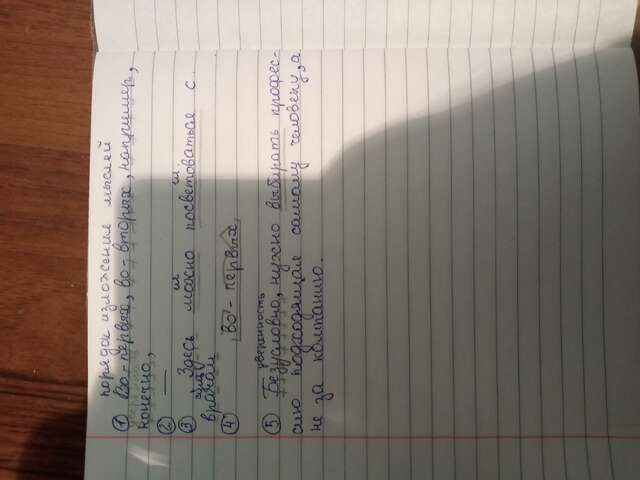 порядок изложение мыслей
① Во-первых, во-вторых, например,
конечно,
② —
③ Здесь можно посветоваться с
врачом
④ Во-первых
уверенность
⑤ Безусловно, нужно выбирать профес-
сию подходящая самому человеку, а
не за компанию.